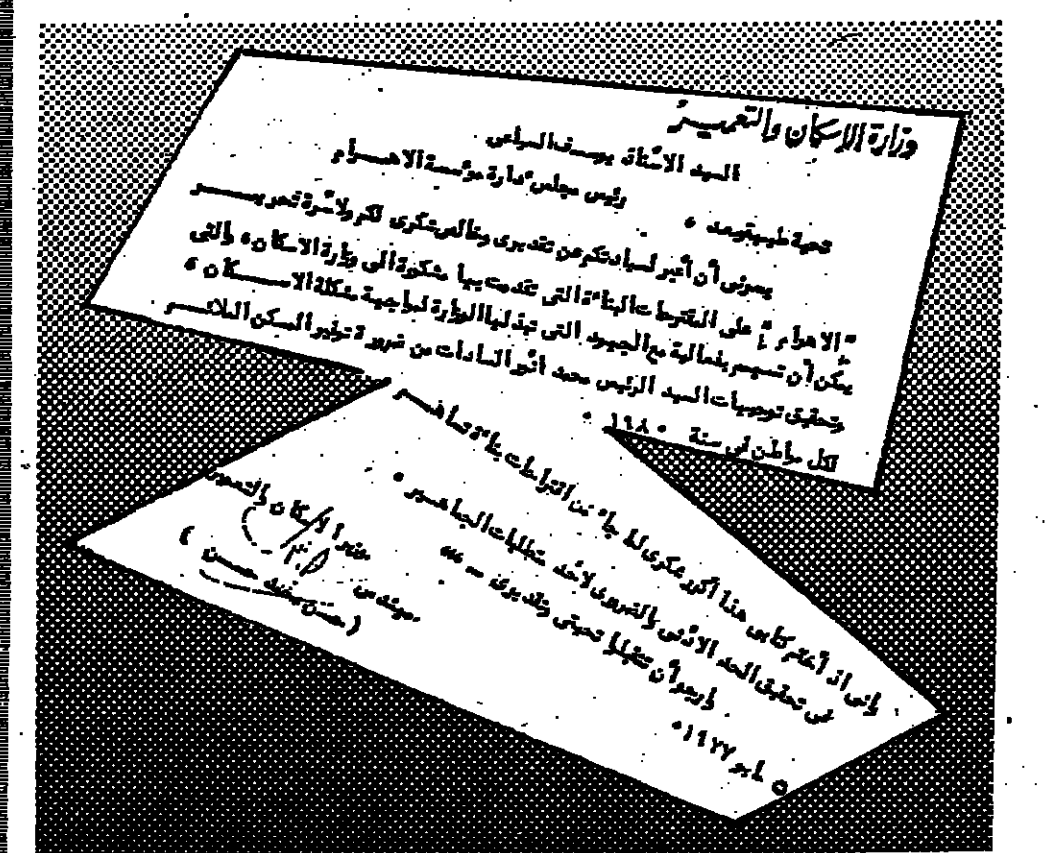 وزارة الاسكان والتعميـــر
السيد الأستاذ يوسف السباعى
رئيس مجلس ادارة مؤسسة الاهـــرام
تحية طيبة وبعد ،
يسرنى أن أعبر لسيادتكم عن تقديرى وخالص شكرى لكم ولأسرة تحريـــر
" الاهرام " على المقترحات البناءة التى تقدمت بها مشكورة الى وزارة الاسكان ، والتى
يمكن أن تسهم بفعالية مع الجهود التى تبذلها الوزارة لمواجهة مشكلة الاســـكان ،
وتحقيق توجيهات السيد الرئيس محمد أنور السادات من ضرورة توفير السكن الملائـــم
لكل مواطن فى سنة ١٩٨٠ .
وإنى اذ أختم كتابى هذا أكرر شكرى لما جاء من اقتراحات بناءة تساهـــم
فى تحقيق الحد الأدنى والضرورى لأحد متطلبات الجماهير .
وأرجو أن تتقبلوا تحيتى وتقديرى ــ ،،،
٥ مايو ١٩٧٧ .
وزير الاسكان والتعمير
مهندس
( حسن محمد حسن )